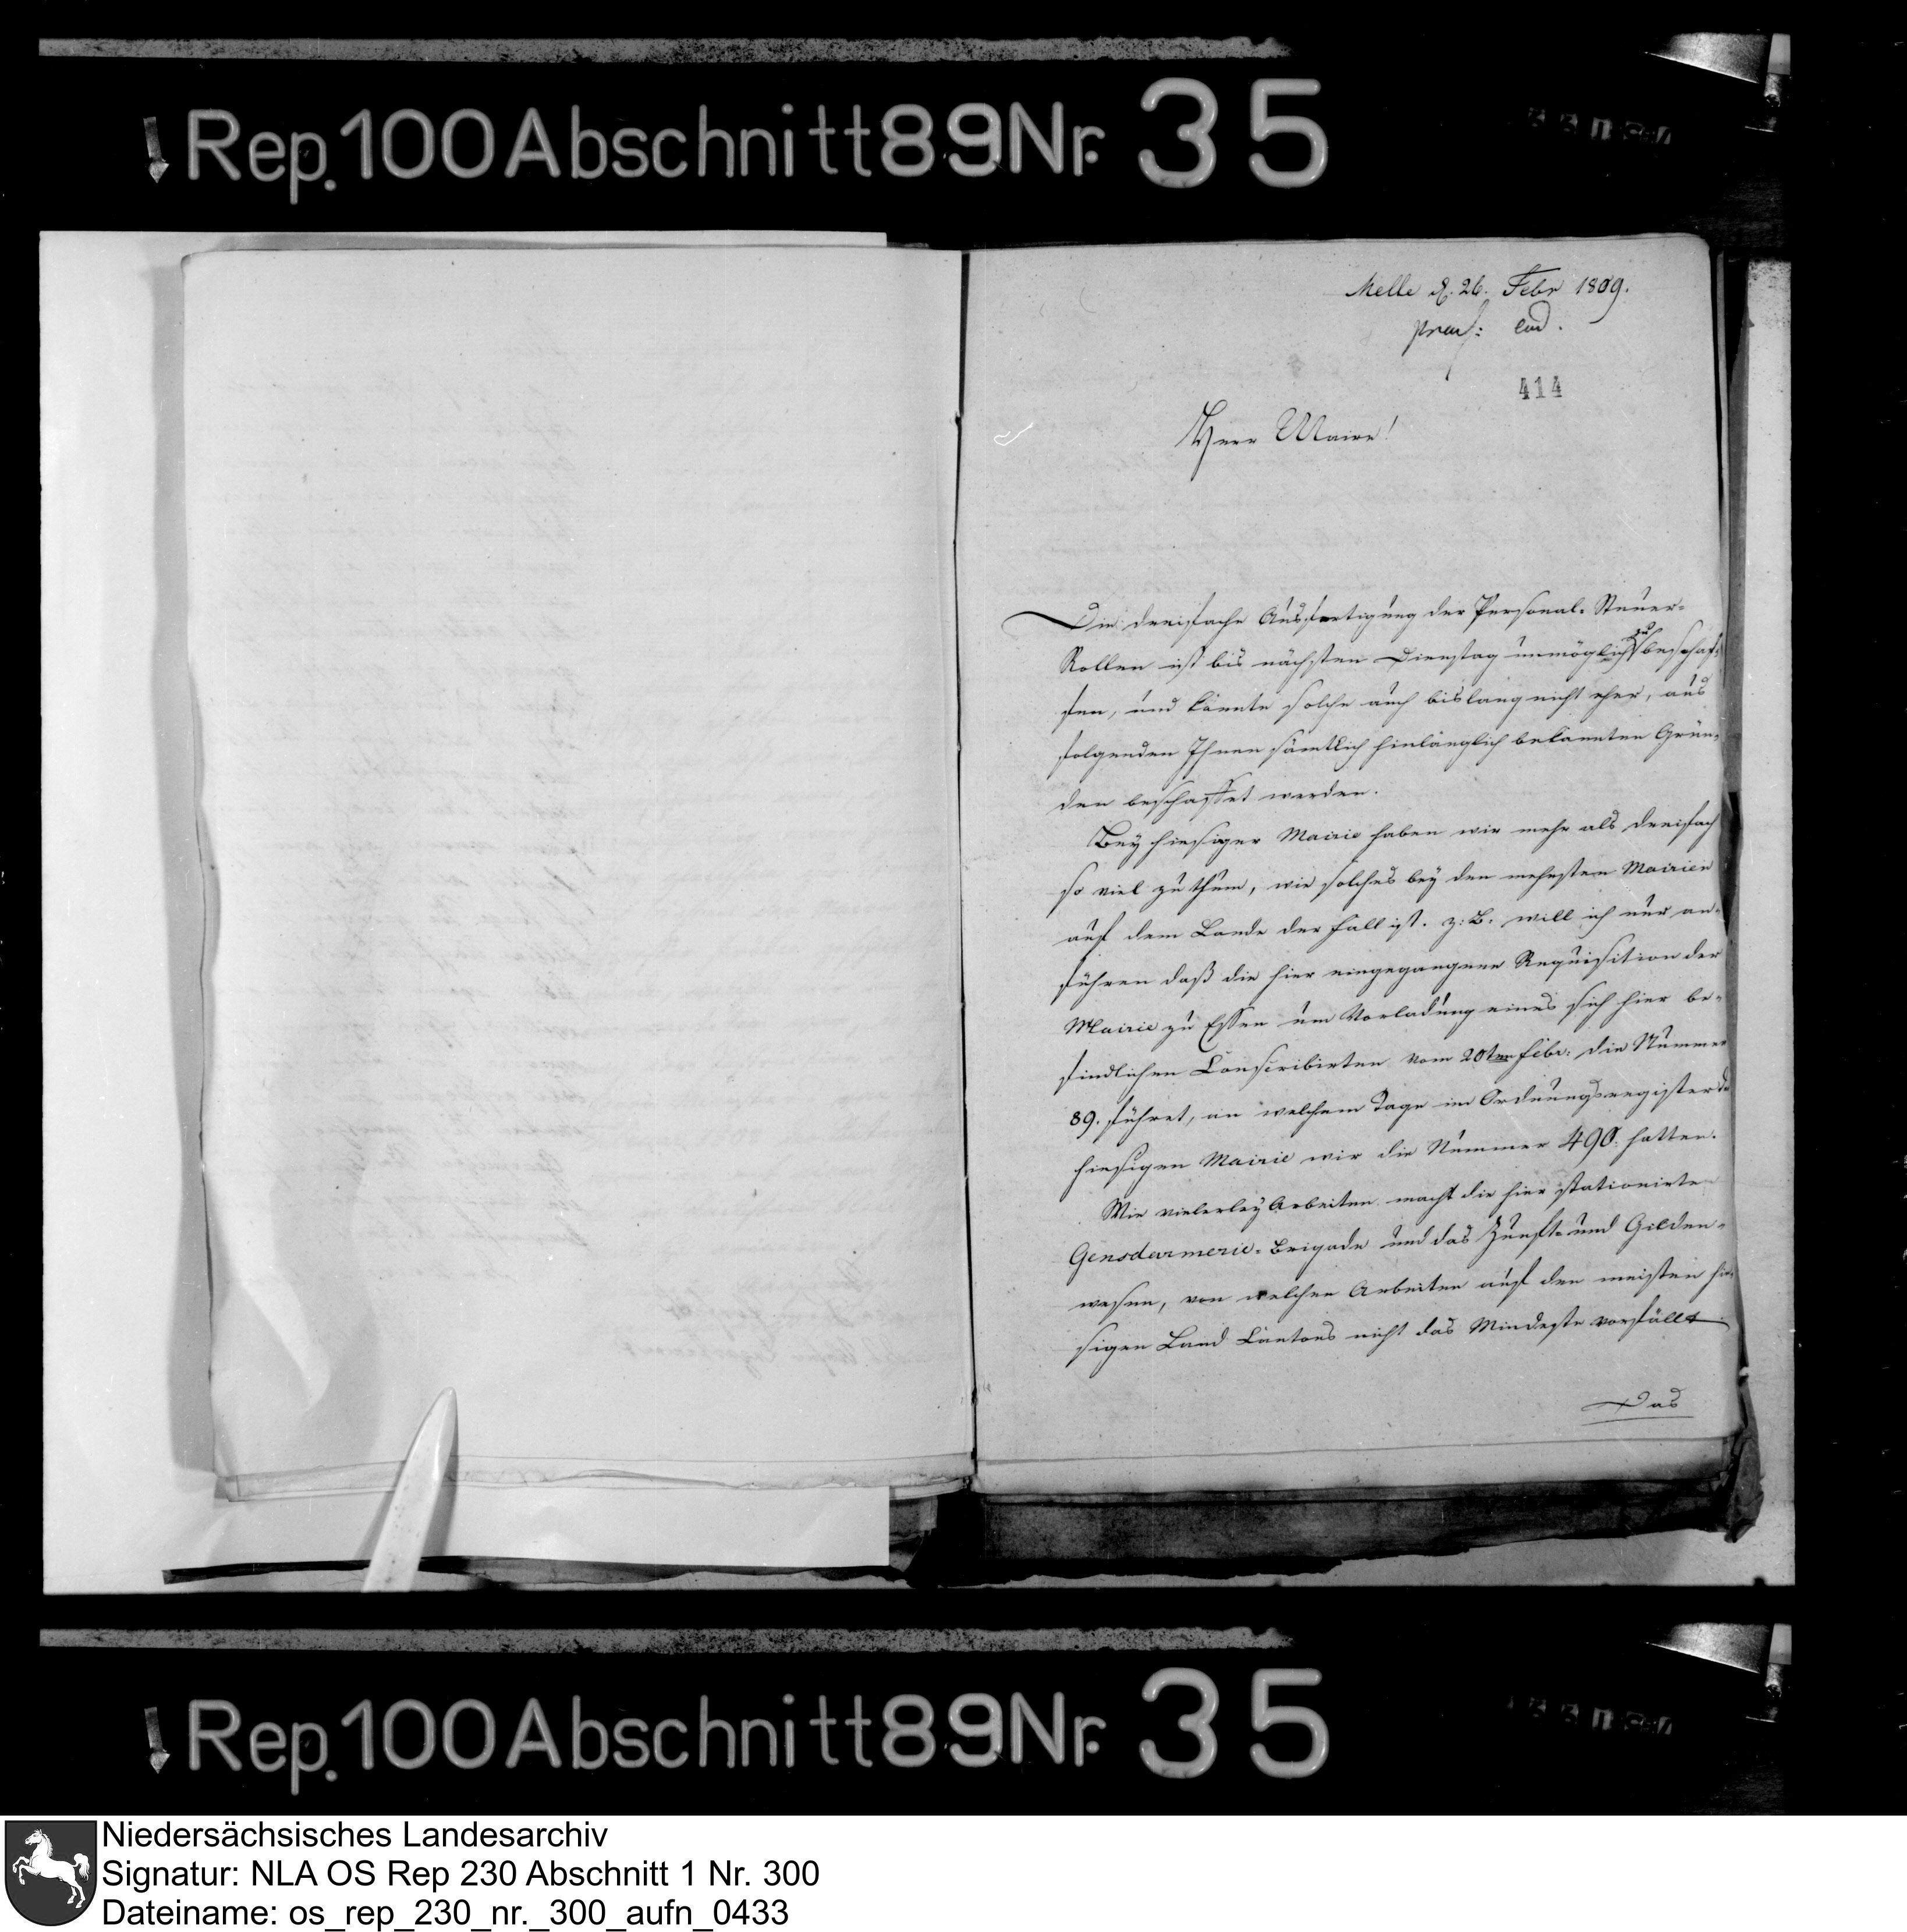 Rep. 100 Abschnitt 89 Nr. 35
Melle d. 26. Febr 1809.
praes: eod.
414
Herr Maire!
Die dreifache Ausfertigung der Personal-Steuer-
Rollen ist bis nächsten Dienstag unmöglich zu beschaf-
fen, und konnte solche auch bislang nicht eher, aus
folgenden Ihnen sämtlich hinlänglich bekannten Grün-
den beschaffet werden.
Bey hiesiger Mairie haben wir mehr als dreifach
so viel zu thun, wie solches bey den mehrsten Mairien
auf dem Lande der Fall ist. z: B. will ich nur an-
führen daß die hier eingegangene Requisition der
Mairie zu Essen um Vorladung eines sich hier be-
findlichen Conscribirten vom 20ten Febr. die Nummer
89. führet, an welchem Tage im Ordnungsregister der
hiesigen Mairie wir die Nummer 490. hatten.
Wie vielerley Arbeiten macht die hier stationirte
Gensdarmerie-Brigade und das Zunft- und Gilden-
wesen, von welchen Arbeiten auf den meisten hie-
sigen Land Cantons nicht das Mindeste vorfällt
Das
Rep. 100 Abschnitt 89 Nr. 35
Niedersächsisches Landesarchiv
Signatur: NLA OS Rep 230 Abschnitt 1 Nr. 300
Dateiname: os_rep_230_nr._300_aufn_0433